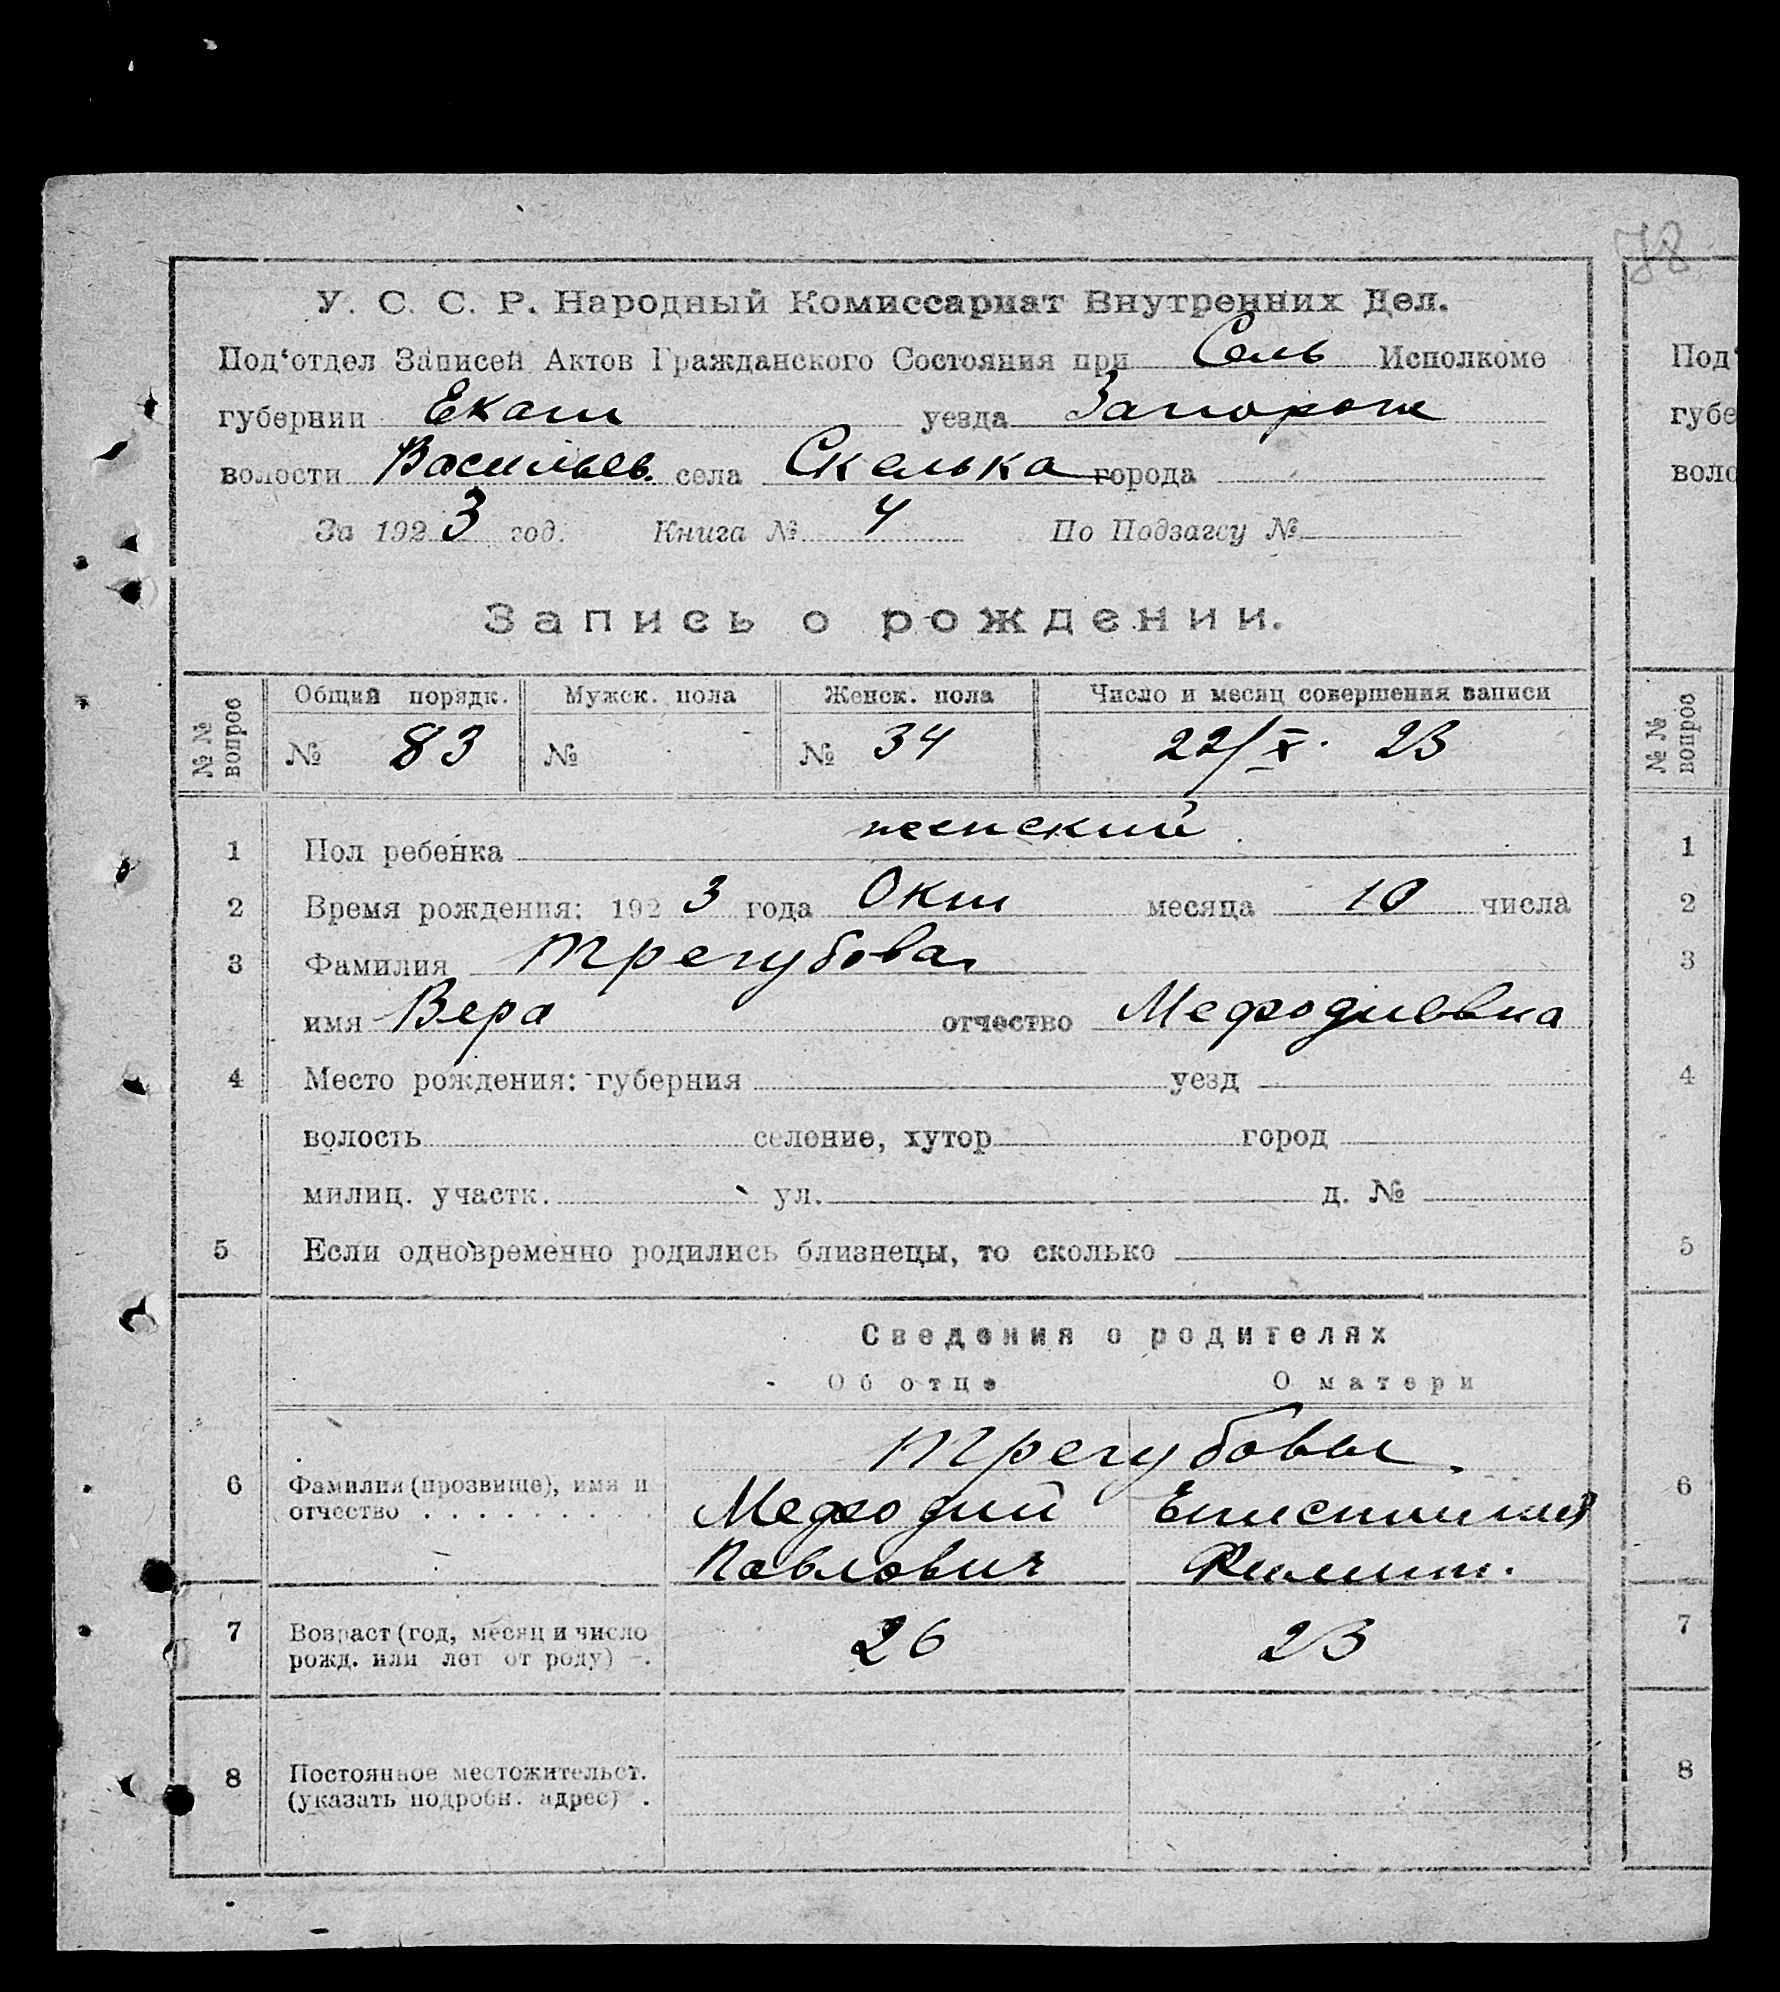 78
У. С. С. Р. Народный Комиссариат Внутренних Дел.
Под‘отдел Записей Актов Гражданского Состояния при Сель Исполкоме
губернии Екат уезда Запорож
волости Васильев. села Скелька города
За 1923 год. Книга № 4 По Подзагсу №
Запись о рождении.
№ № вопрос Общий порядк. Мужск. пола Женск. пола Число и месяц совершения записи
№ 83 № № 34 22/X. 23
1 Пол ребенка женский
2 Время рождения: 1923 года Окт месяца 10 числа
3 Фамилия Трегубова
имя Вера отчество Мефодиевна
4 Место рождения: губерния уезд
волость селение, хутор город
милиц. участк. ул. д. №
5 Если одновременно родились близнецы, то сколько
Сведения о родителях
Об отце О матери
Трегубовы.
6 Фамилия (прозвище), имя и Мефодий
отчество Павлович Филипп.
7 Возраст (год, месяц и число 26 23
рожд. или лет от роду)
8 Постоянное местожительст.
(указать подробн. адрес)
Под‘
губе
воло
№ № вопрос
1
2
3
4
5
6
7
8